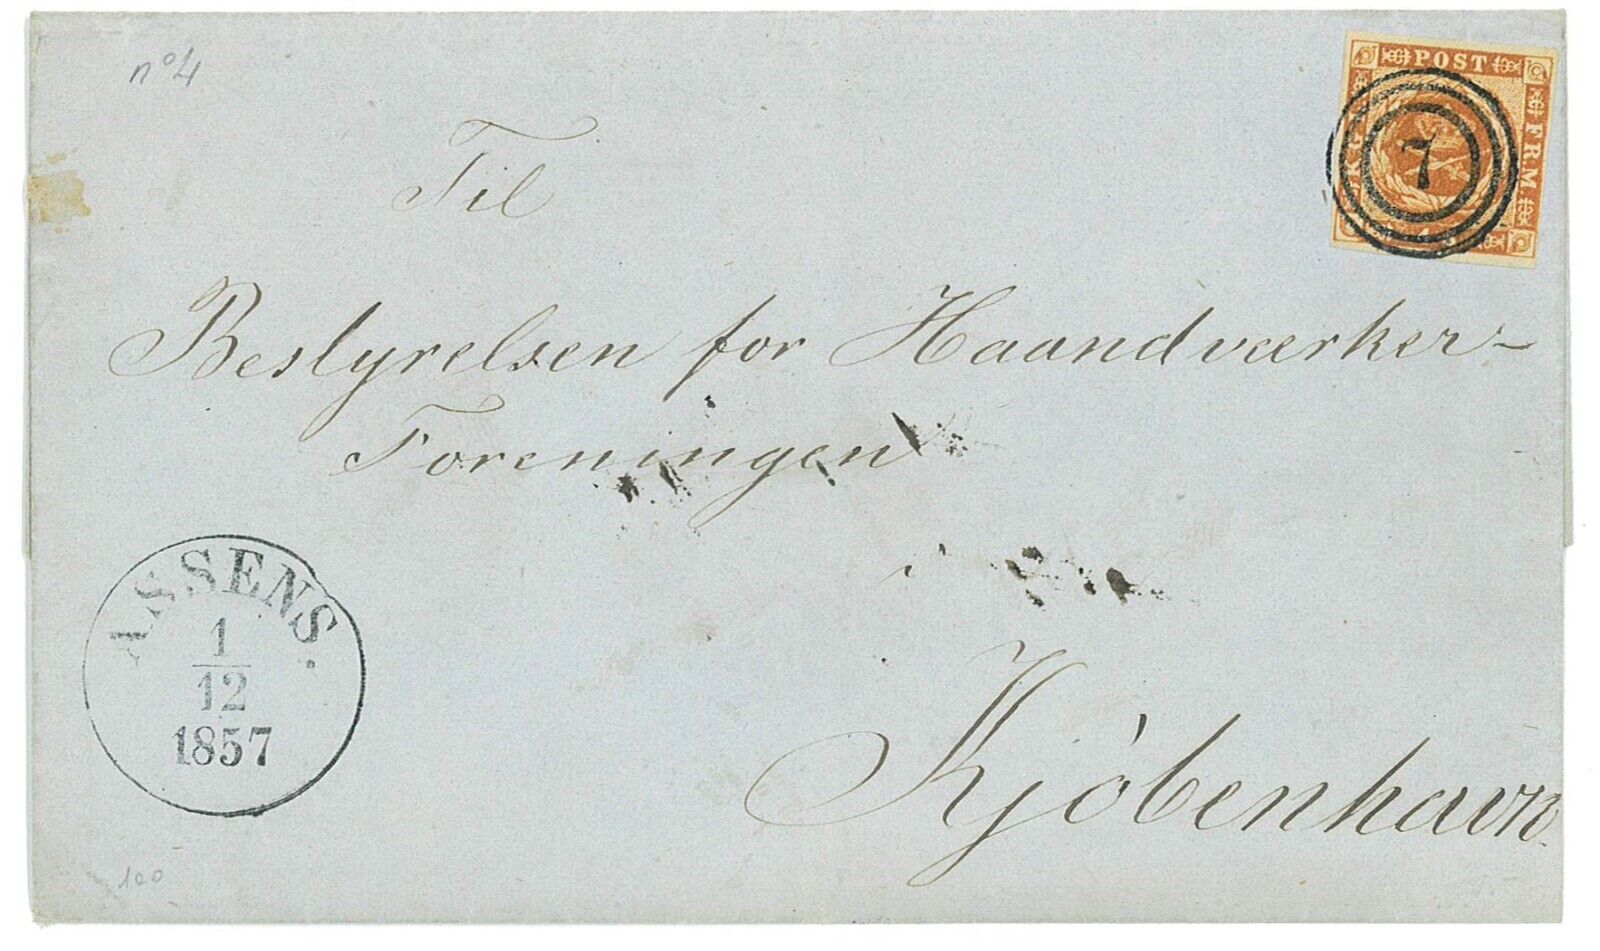 n°4
POST
K G
F.R.M
7
4 S
Til
Bestyrelsen for Haandværker-
Foreningen
i
Kjöbenhavn
ASSENS.
1
12
1857
100